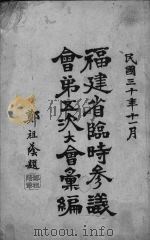 民國三十年十一月
福建省臨時參議
會第五次大會彙編
鄭祖蔭題
www.mtoou.info